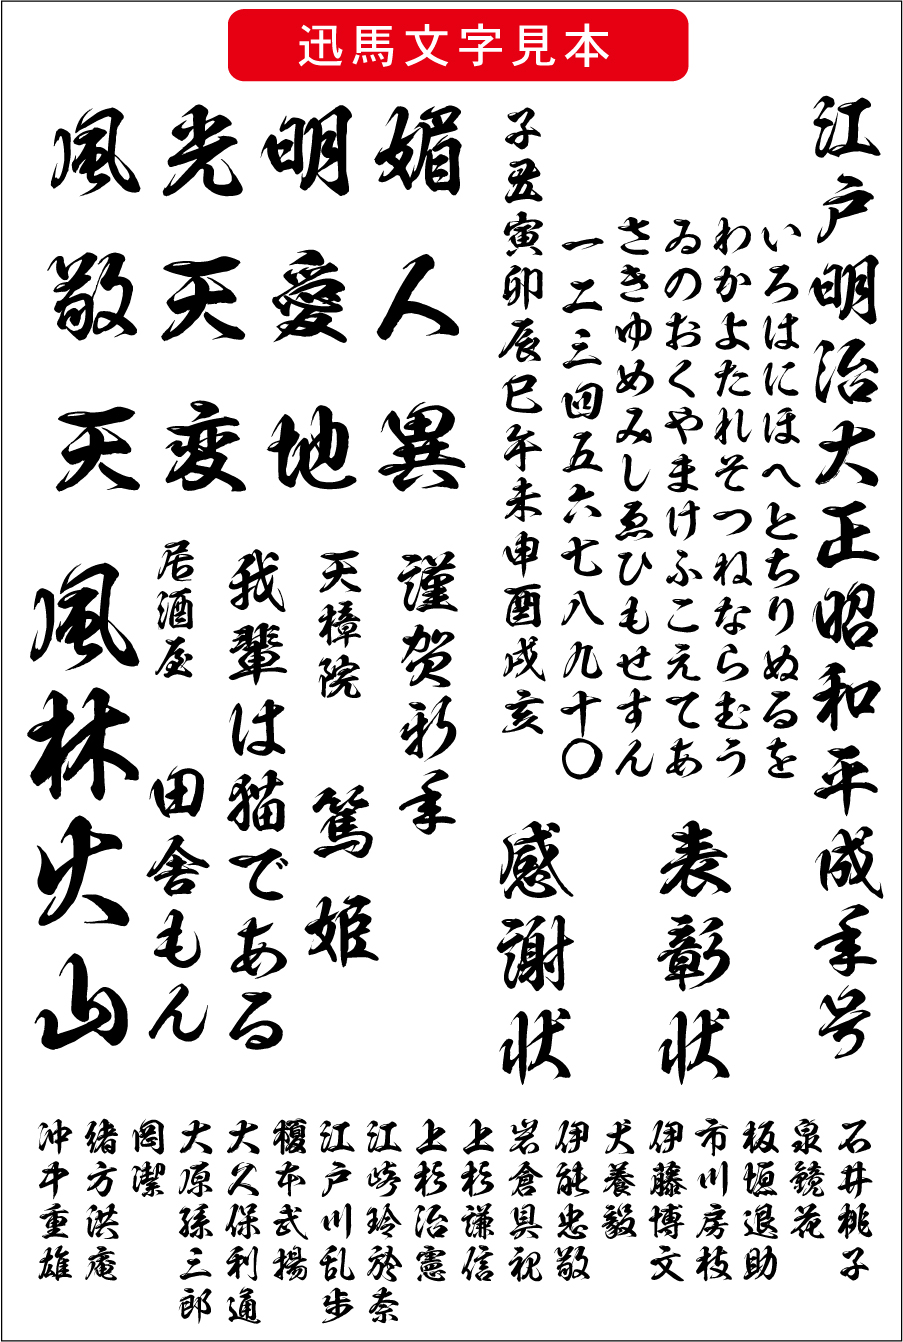 迅馬文字見本
江戸明治大正昭和平成年号
いろはにほへとちりぬるを
わかよたれそつねならむう
ゐのおくやまけふこえてあ
さきゆめみしゑひもせすん
一二三四五六七八九十〇
子丑寅卯辰巳午未申酉戌亥
表彰状
感謝状
媚人異
明愛地
光天変
風敬天
謹賀新年
天樟院
篤姫
我輩は猫である
居酒屋
田舎もん
風林火山
石井桃子
泉鏡花
板垣退助
市川房枝
伊藤博文
犬養毅
伊能忠敬
岩倉具視
上杉謙信
上杉治憲
江崎玲於奈
江戸川乱歩
榎本武揚
大久保利通
大原孫三郎
岡潔
緒方洪庵
沖中重雄